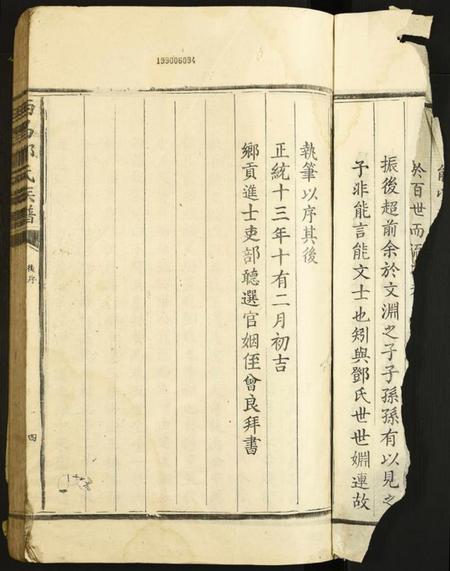 199006094
於百世而
振後超前余於文淵之子子孫孫有以見之
子非能言能文士也矧與鄧氏世世婣連故
執筆以序其後
正統十三年十有二月初吉
鄉貢進士吏部聽選官姻侄曾良拜書
鄧氏族譜
後序
四